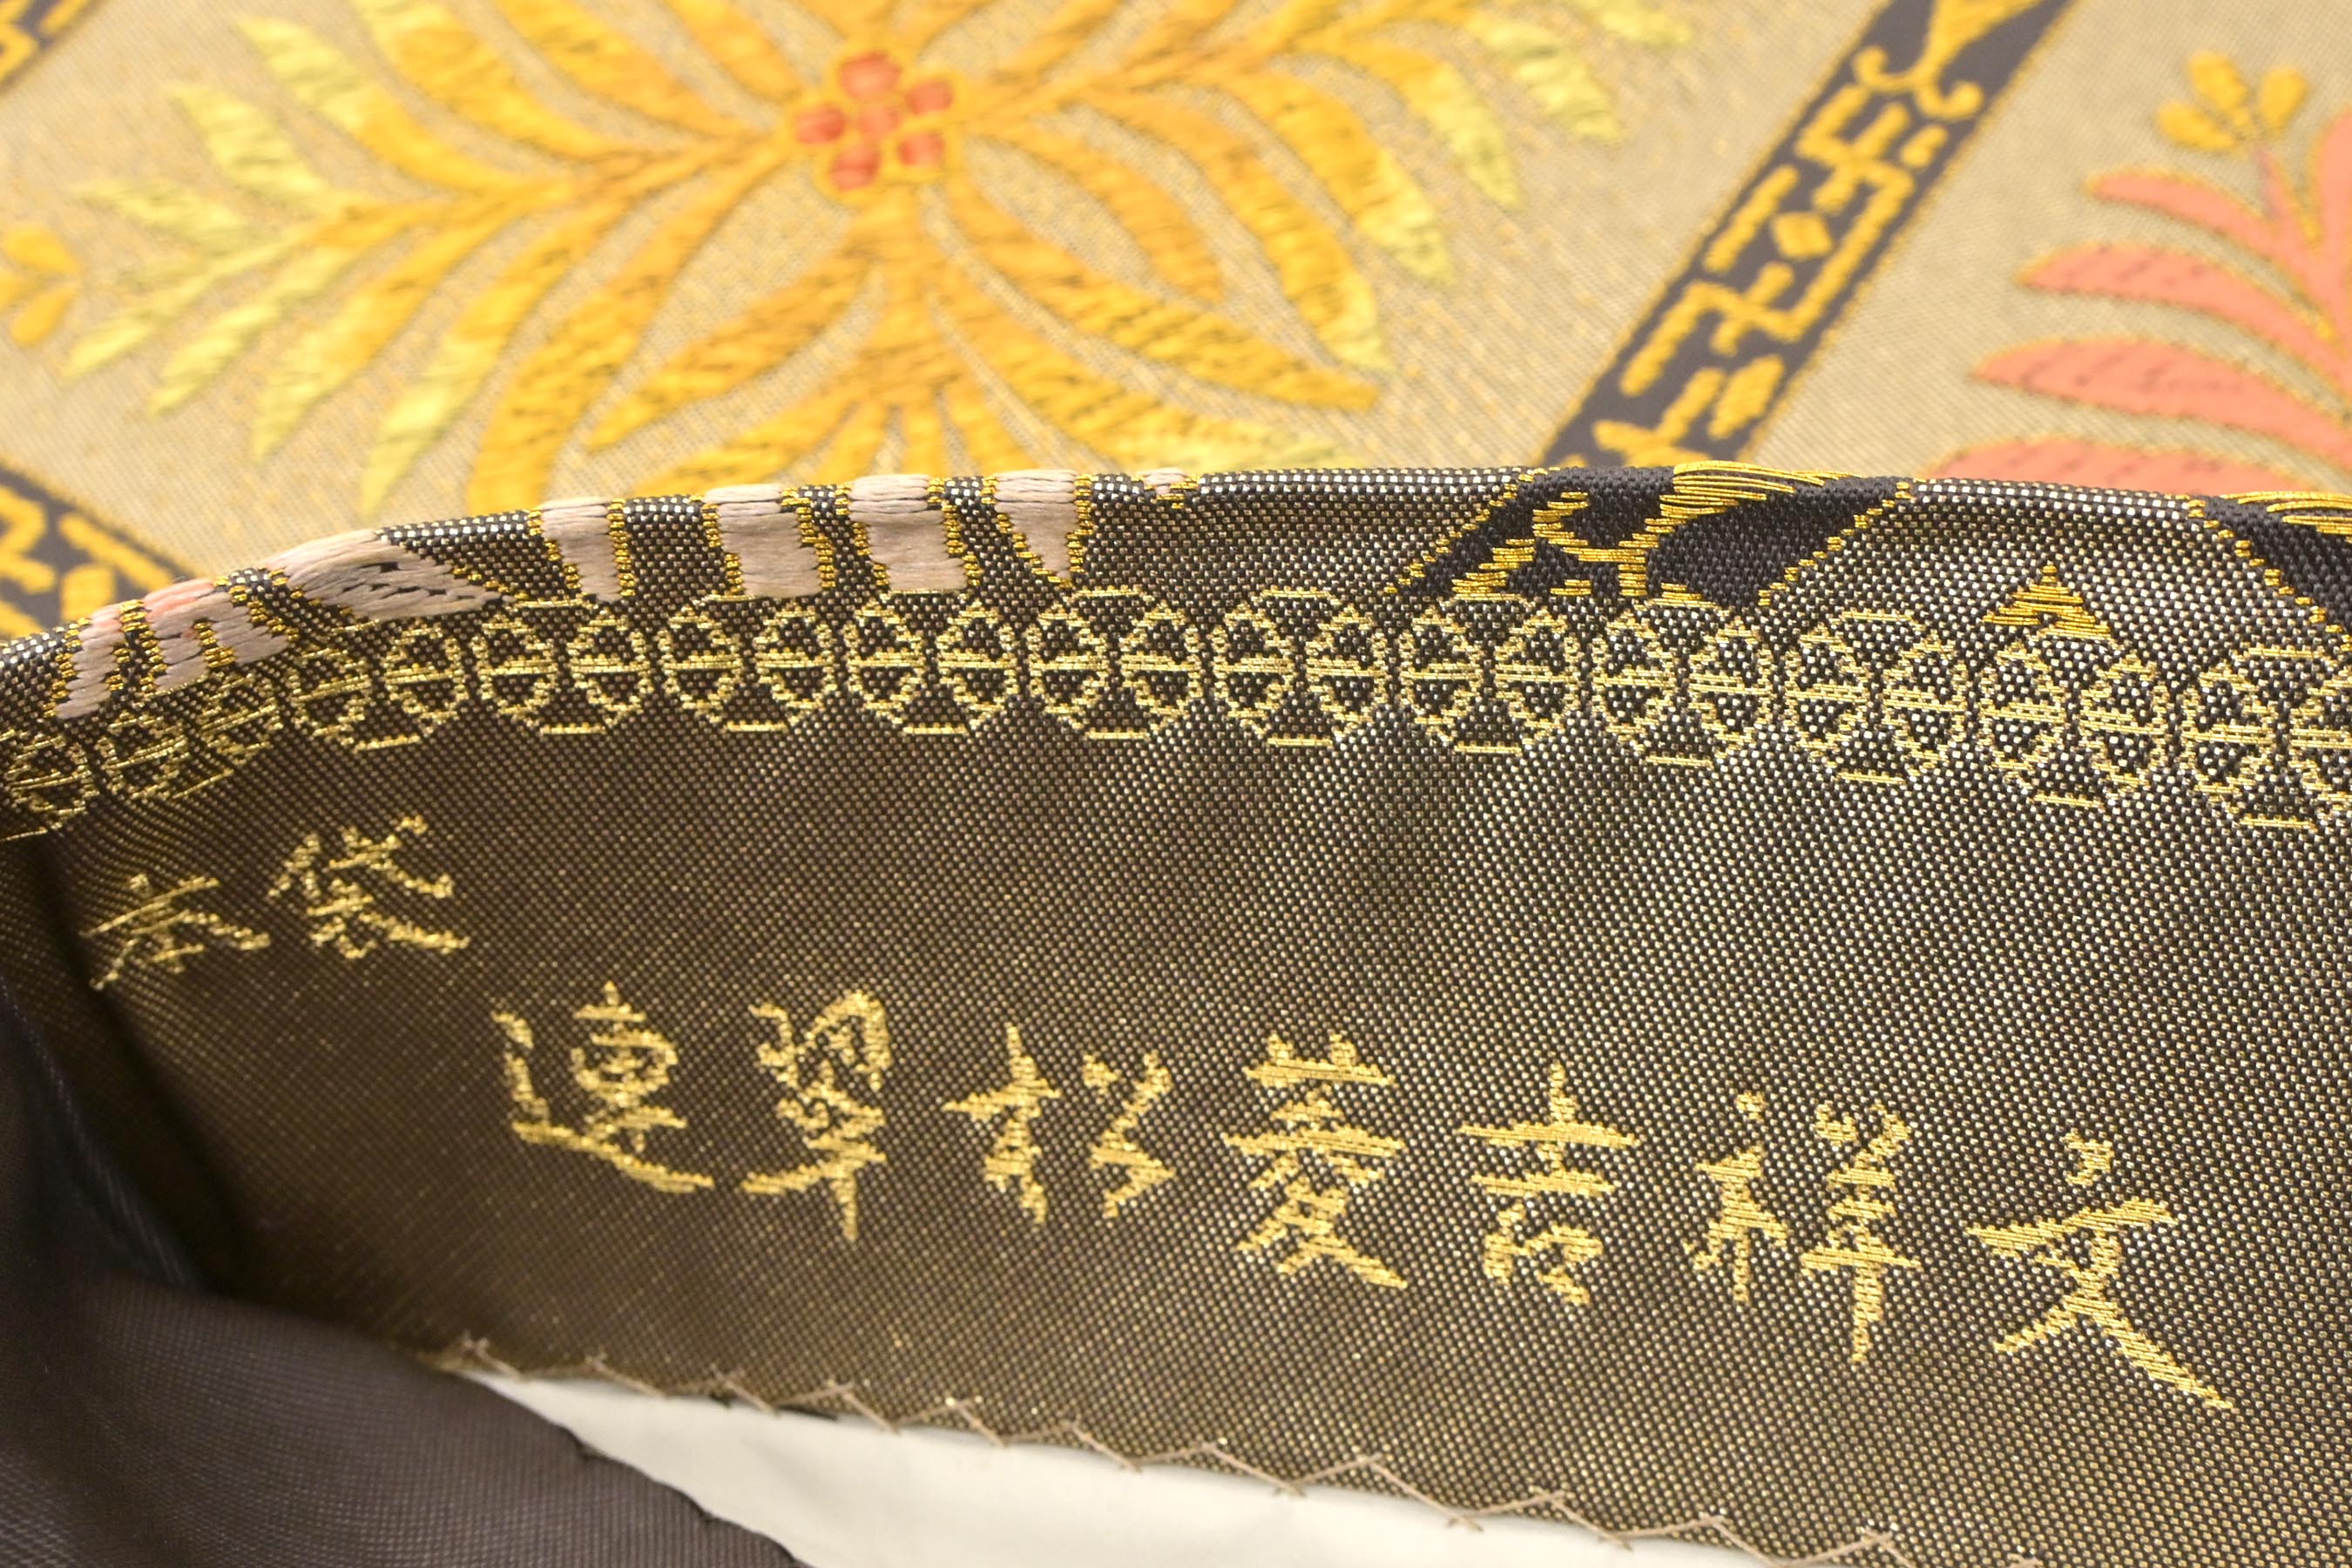 本袋
連翠松菱吉祥文